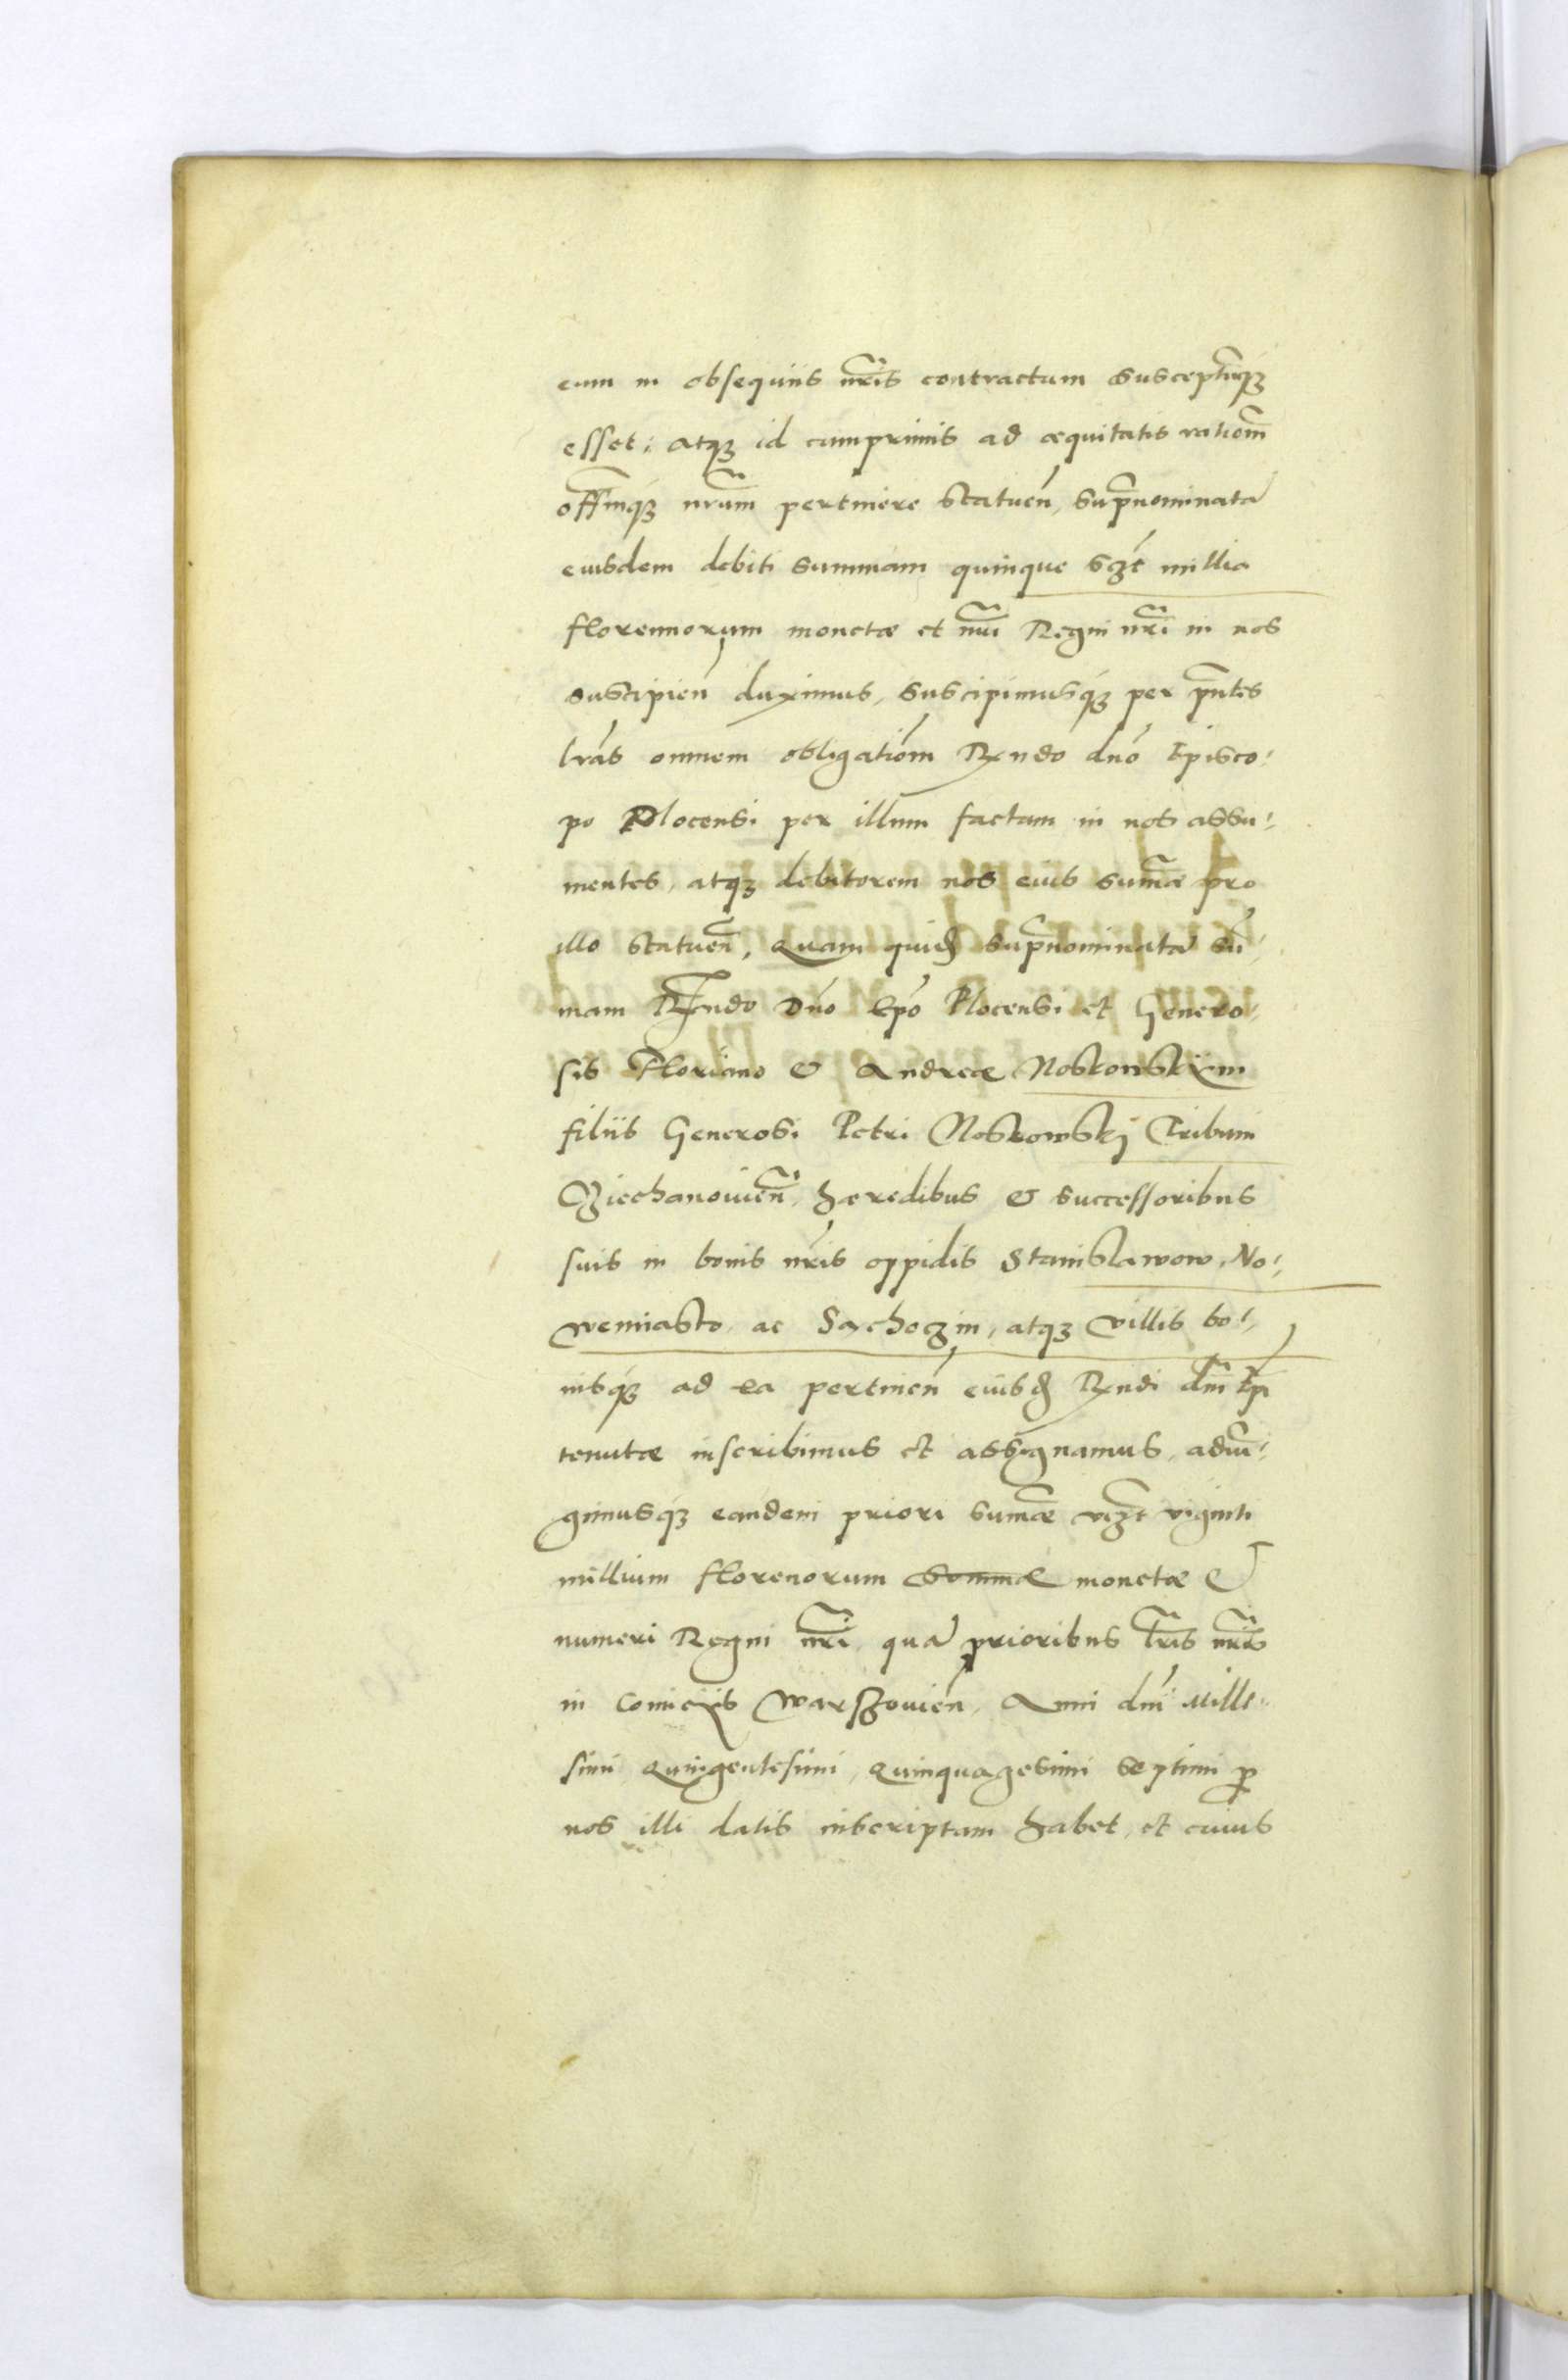 eum in obsequiis nr̃is contractum susceptũq́ꝫ
esset: atqꝫ id cumprimis ad æquitatis ratiom̃
offm̃q́ꝫ nrũm pertinere statueñ, sup̃nominatã
eiusdem debiti summam quinque sczt millia
florennorum monetæ et nũi Regni nr̃i in nos
suscipień duximus, suscipimusq́ꝫ per p̃ntes
lrás omnem obligatióm Rx̃ndo dnó Episco:
po Plocensi per illum factam in nos assu:
mentes, atqꝫ debitorem nos eius sum̃æ pro
illo statueñ, Quam quidẽ sup̃nominatã sũ:
mam Rx̃ndo Dńo Epó Plocensi et Genero:
sis Floriano & Andreæ Noskowskÿm
filiis Generosi Petri Noskowskj Tribuni
Cziechanovieñ, hæredibus & successoribus
suis in bonis nr̃is oppidis Stanislawow, No:
wemiasto ac Sochoczin, atqꝫ villis bo:
nisq́ꝫ ad ea pertineñ eiusdẽ Rx̃ndi dñi Epĩ
tenutæ inscribimus et assignamus, adiũ:
gimusq́ꝫ eandem priori sum̃æ vizt viginti
millium florenorum som̃mæ monetæ &
numeri Regni nr̃i, quã prioribus lr̃is nr̃is
in comicÿs Warszovień, Anni dñi Mille:
simi Quingentesimi, Quinquagesimi septimi ꝑ
nos illi datis inscriptam habet, et cuius